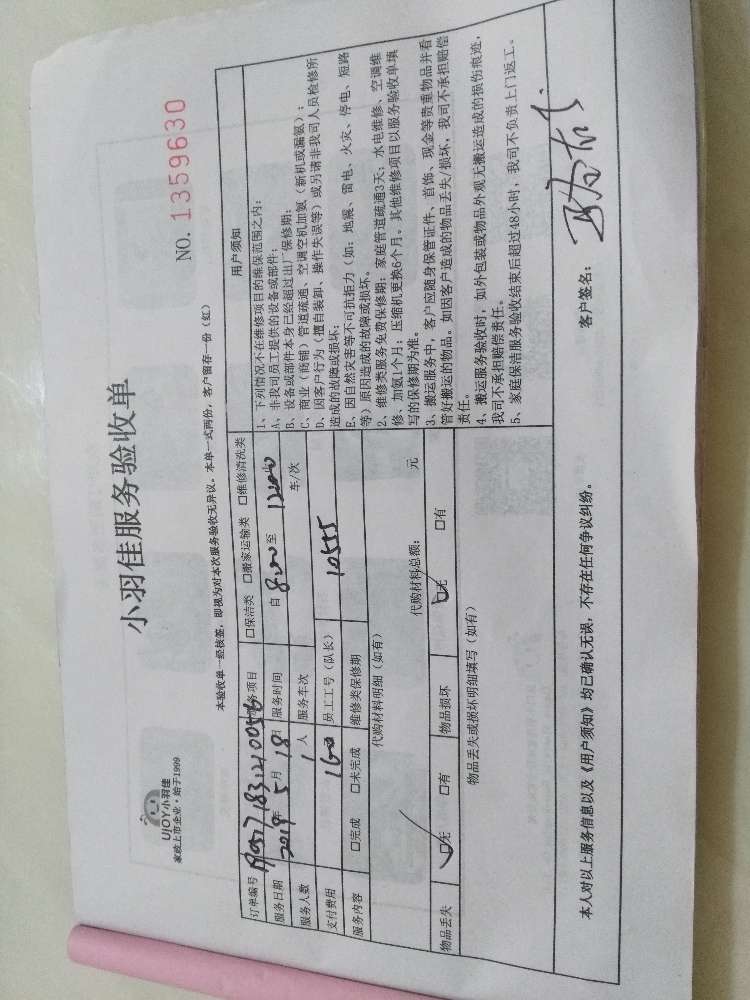 UJOY小羽佳
家政上市企业·始于1999
小羽佳服务验收单
NO. 1359630
本验收单一经核签，即视为对本次服务验收无异议。本单一式两份：客户留存一份（红）
订单编号 服务项目 □保洁类 □搬家运输类 □维修清洗类
服务日期 2019年5月18日 服务时间 自 8:00 至 12:00
服务人数 1人 服务车次 车/次
支付费用 160 员工工号（队长） 10555
服务内容 □完成 □未完成 维修类保修期
代购材料明细（如有）
代购材料总额： 元
物品丢失 □无 □有 物品损坏 □无 □有
物品丢失或损坏明细填写（如有）
用户须知
1、下列情况不在维修项目的维保范围之内：
A、非我司员工提供的设备或部件；
B、设备或部件本身已经超过出厂保修期；
C、商业（商铺）管道疏通、空调空机加氨（新机或漏氨）；
D、因客户行为（擅自装卸、操作失误等）或另请非我司人员检修所
造成的故障或损坏；
E、因自然灾害等不可抗拒力（如：地震、雷电、火灾、停电、短路
等）原因造成的故障或损坏。
2、维修类服务免费保修期：家庭管道疏通3天；水电维修、空调维
修、加氨1个月；压缩机更换6个月。其他维修项目以服务验收单填
写的保修期为准。
3、搬运服务中，客户应随身保管证件、首饰、现金等贵重物品并看
管好搬运的物品。如因客户造成的物品丢失/损坏，我司不承担赔偿
责任。
4、搬运服务验收时，如外包装或物品外观无搬运造成的损伤痕迹，
我司不承担赔偿责任。
5、家庭保洁服务验收结束后超过48小时，我司不负责上门返工。
本人对以上服务信息以及《用户须知》均已确认无误，不存在任何争议纠纷。
客户签名：